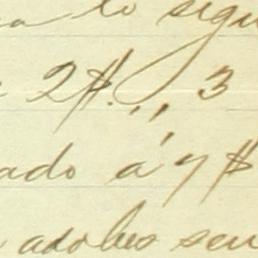 lo sigu
2$. ,, 3
ado á 7 $
adobes sen